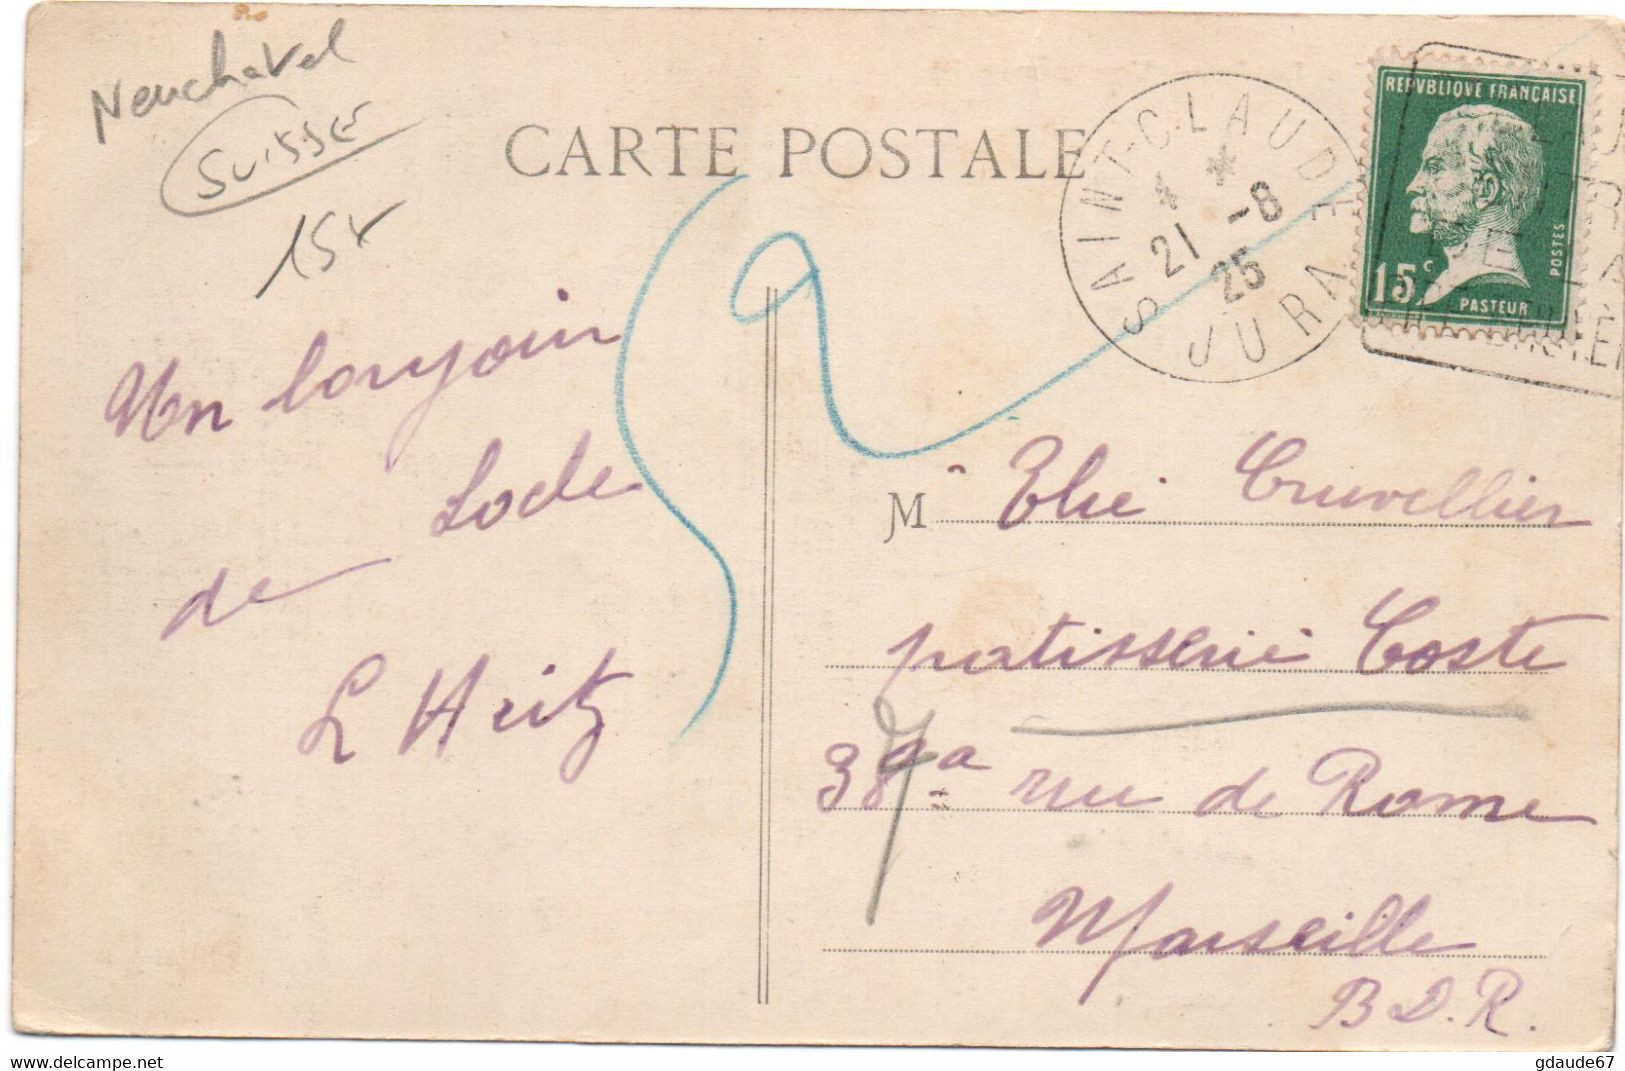 Neuchatel
SUISSE
15
CARTE POSTALE
SAINT-CLAUDE
21 -8
25
JURA
REPVBLIQVE FRANÇAISE
15c
POSTES
PASTEUR
Un bonjour
Locle
de
L Hritz
M Elie Cruvellier
patisserie Coste
38a rue de Rome
Marseille
B.D.R.
www.delcampe.net
gdaude67